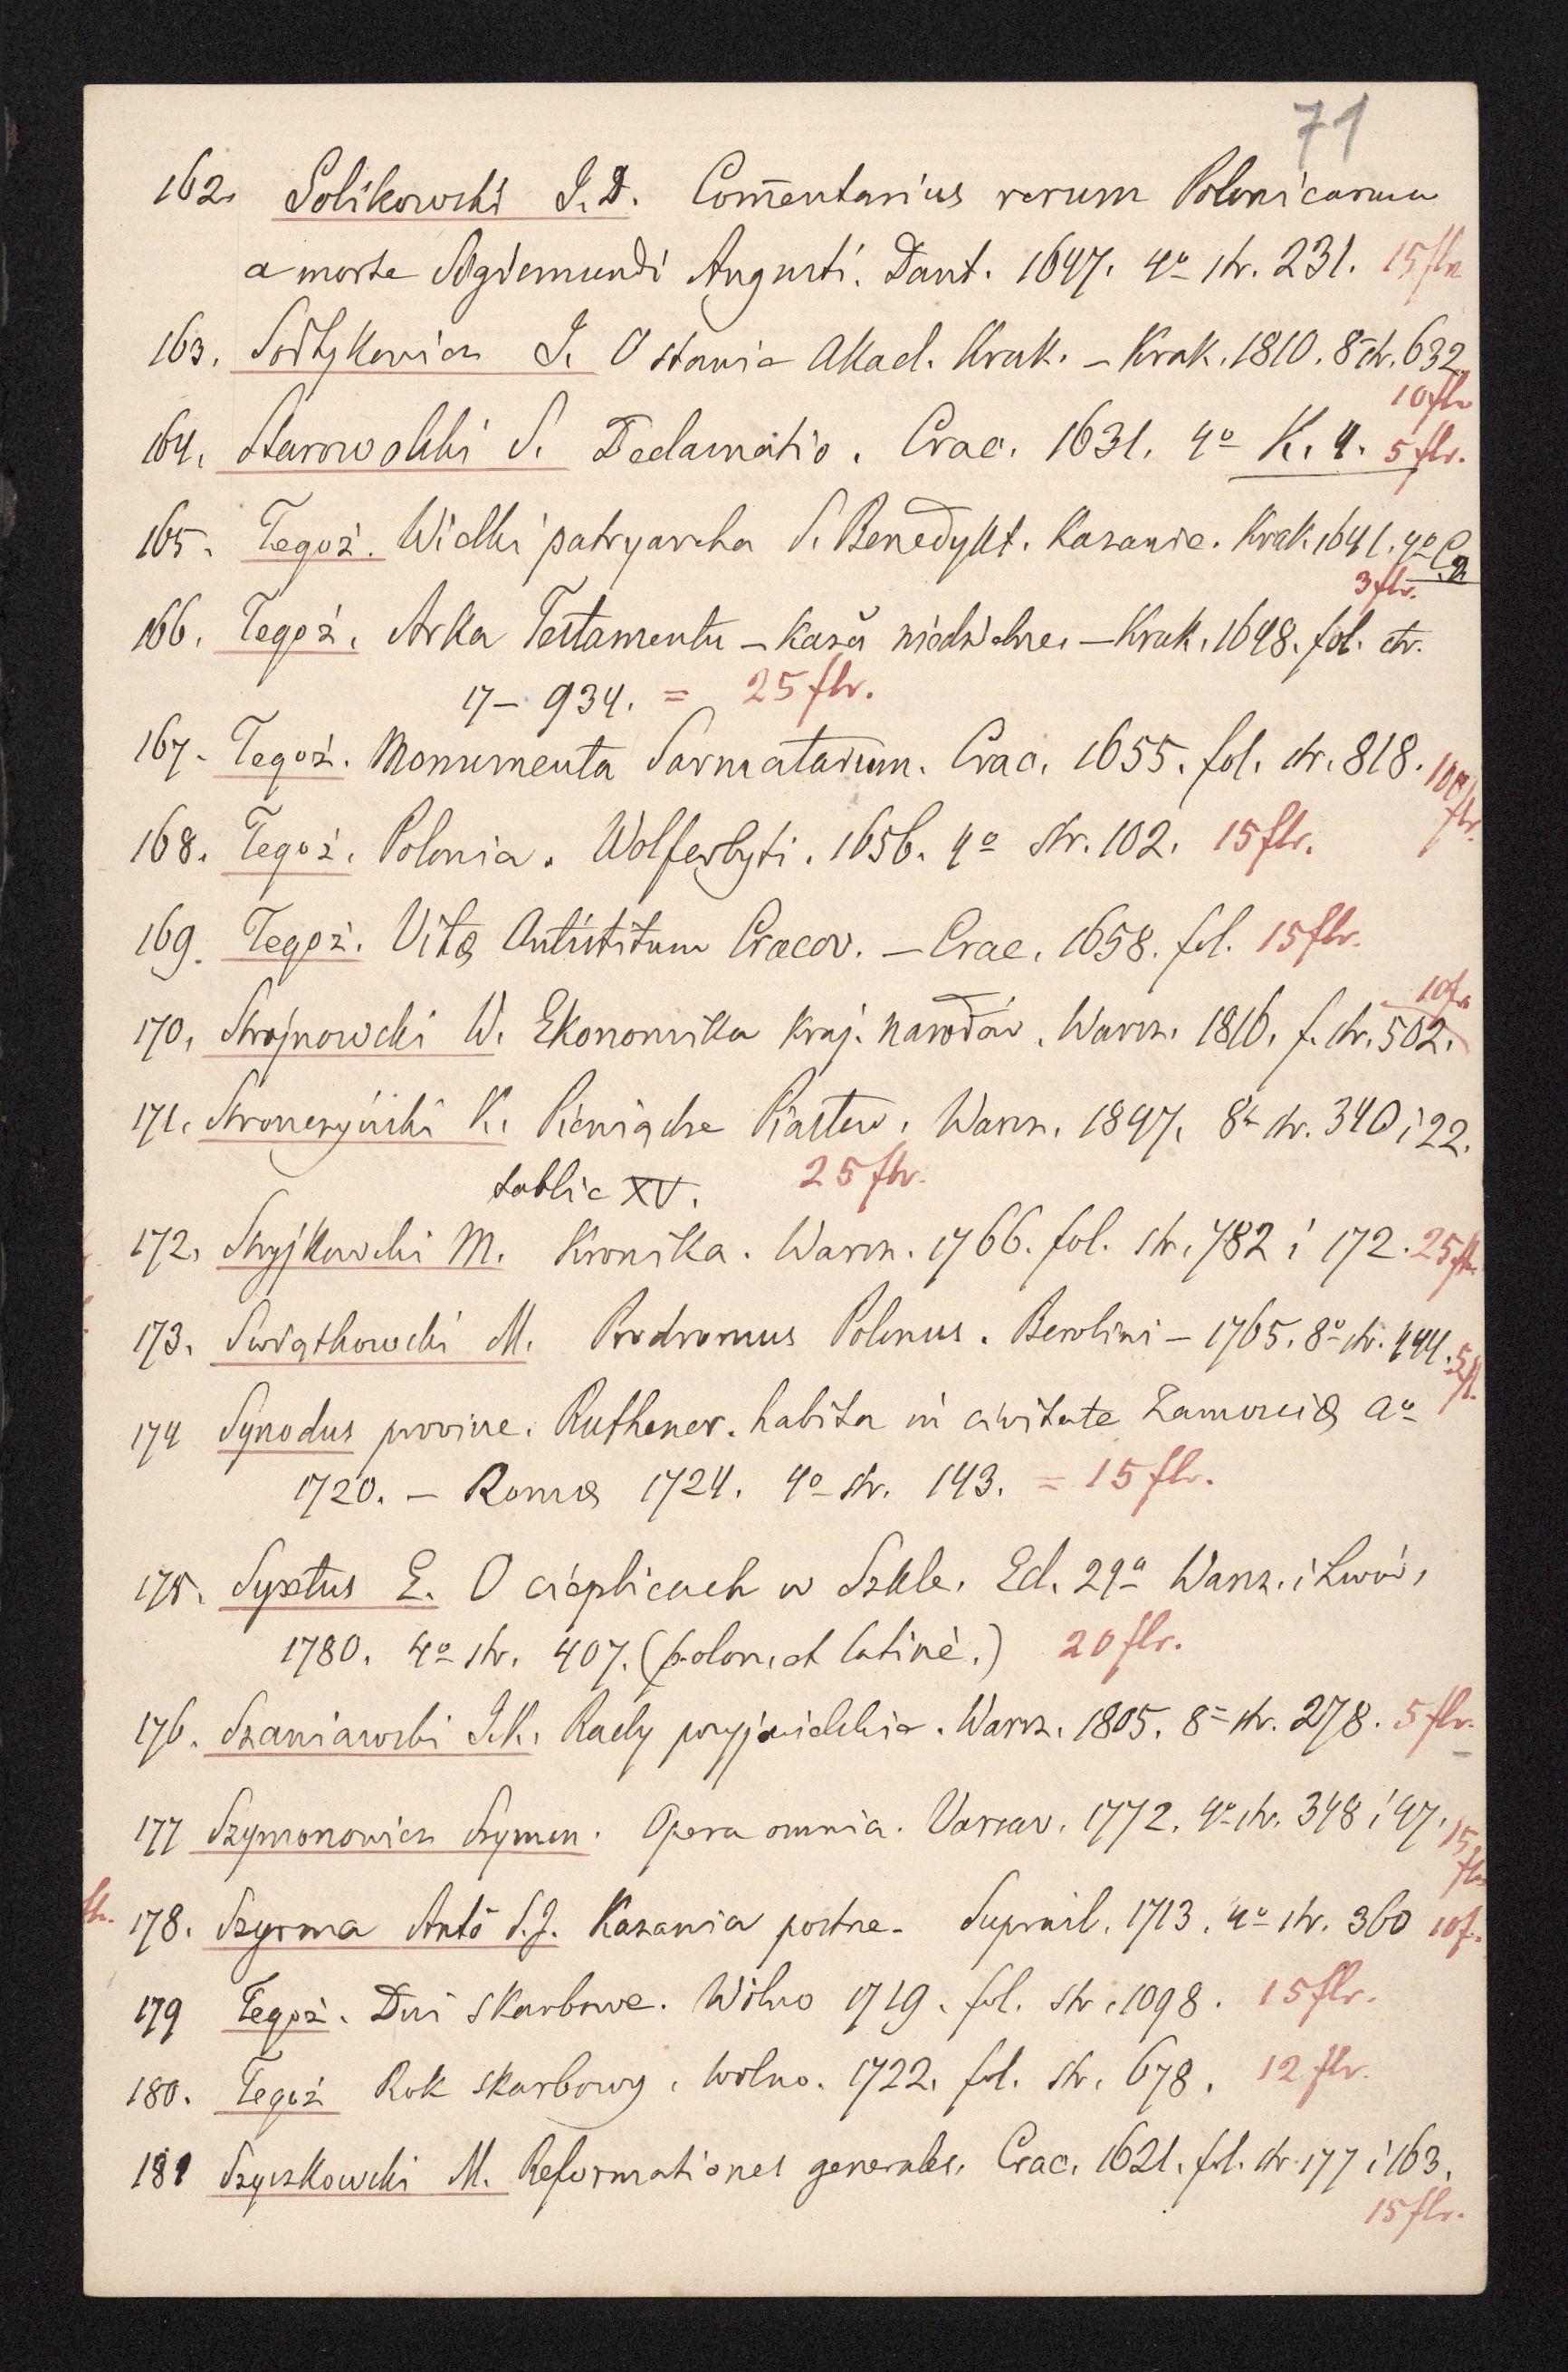 71
162. Solikowski J.D. Com̄entarius rerum Polonicarum
a morte Sigiemundi Augusti. Dant. 1647. 4º str. 231. 15 flr
163. Sołtykowicz J. O stanie Akad. Krak. – Krak. 1810. 8º str. 632.
10 flr
164. Starowolski S. Declamatio. Crac. 1631. 4º K. 4. 5 flr.
165. Tegoż. Wielki patryarcha S. Benedykt. Kazanie. Krak. 1641. 4º
3 flr.
166. Tegoż. Arka Testamentu – kazā niedzielne. – Krak. 1648. fol. str.
17 – 934. = 25 flr.
167. Tegoż. Monumenta Sarmatarum. Crac. 1655. fol. str. 818. 100
flr.
168. Tegoż. Polonia. Wolferbyti. 1656. 4º str. 102. 15 flr.
169. Tegoż. Vitæ Antistitum Cracov. – Crac. 1658. fol. 15 flr.
10 fr
170. Strojnowski W. Ekonomika kraj. narodów. Warsz. 1816. f. str. 502.
171. Stronczyński K. Pieniądze Piastów. Warsz. 1847. 8º str. 340 i 22.
tablic XV. 25 flr.
172. Stryjkowski M. Kronika. Warsz. 1766. fol. str. 782 i 172. 25 flr.
173. Swiątkowski M. Prodromus Polonus. Berolini – 1765. 8º str. 444. 5
fl.
174 Synodus provinc. Ruthenor. habita in civitate Zamosciæ aº
1720. – Romæ 1724. 4º str. 143. = 15 flr.
175. Syxtus E. O cieplicach w Szkle. Ed. 2gª Warsz. i Lwów,
1780. 4º str. 407. (polon. et latinè.) 20 flr.
176. Szaniawski J.K. Rady przyjacielskie. Warsz. 1805. 8º str. 278. 5 flr.
177 Szymonowicz Szymon. Opera omnia. Varsav. 1772. 4º str. 348 i 47. 15
flr
flr. 178. Szyrma Antō S.J. Kazania postne. Suprasl. 1713. 4º str. 360 10 f.
179 Tegoż. Dni skarbowe. Wilno 1719. fol. str. 1098. 15 flr.
180. Tegoż Rok skarbowy. Wilno. 1722. fol. str. 678. 12 flr.
181 Szyszkowski M. Reformationes generales. Crac. 1621. fol. str. 177 i 163.
15 flr.